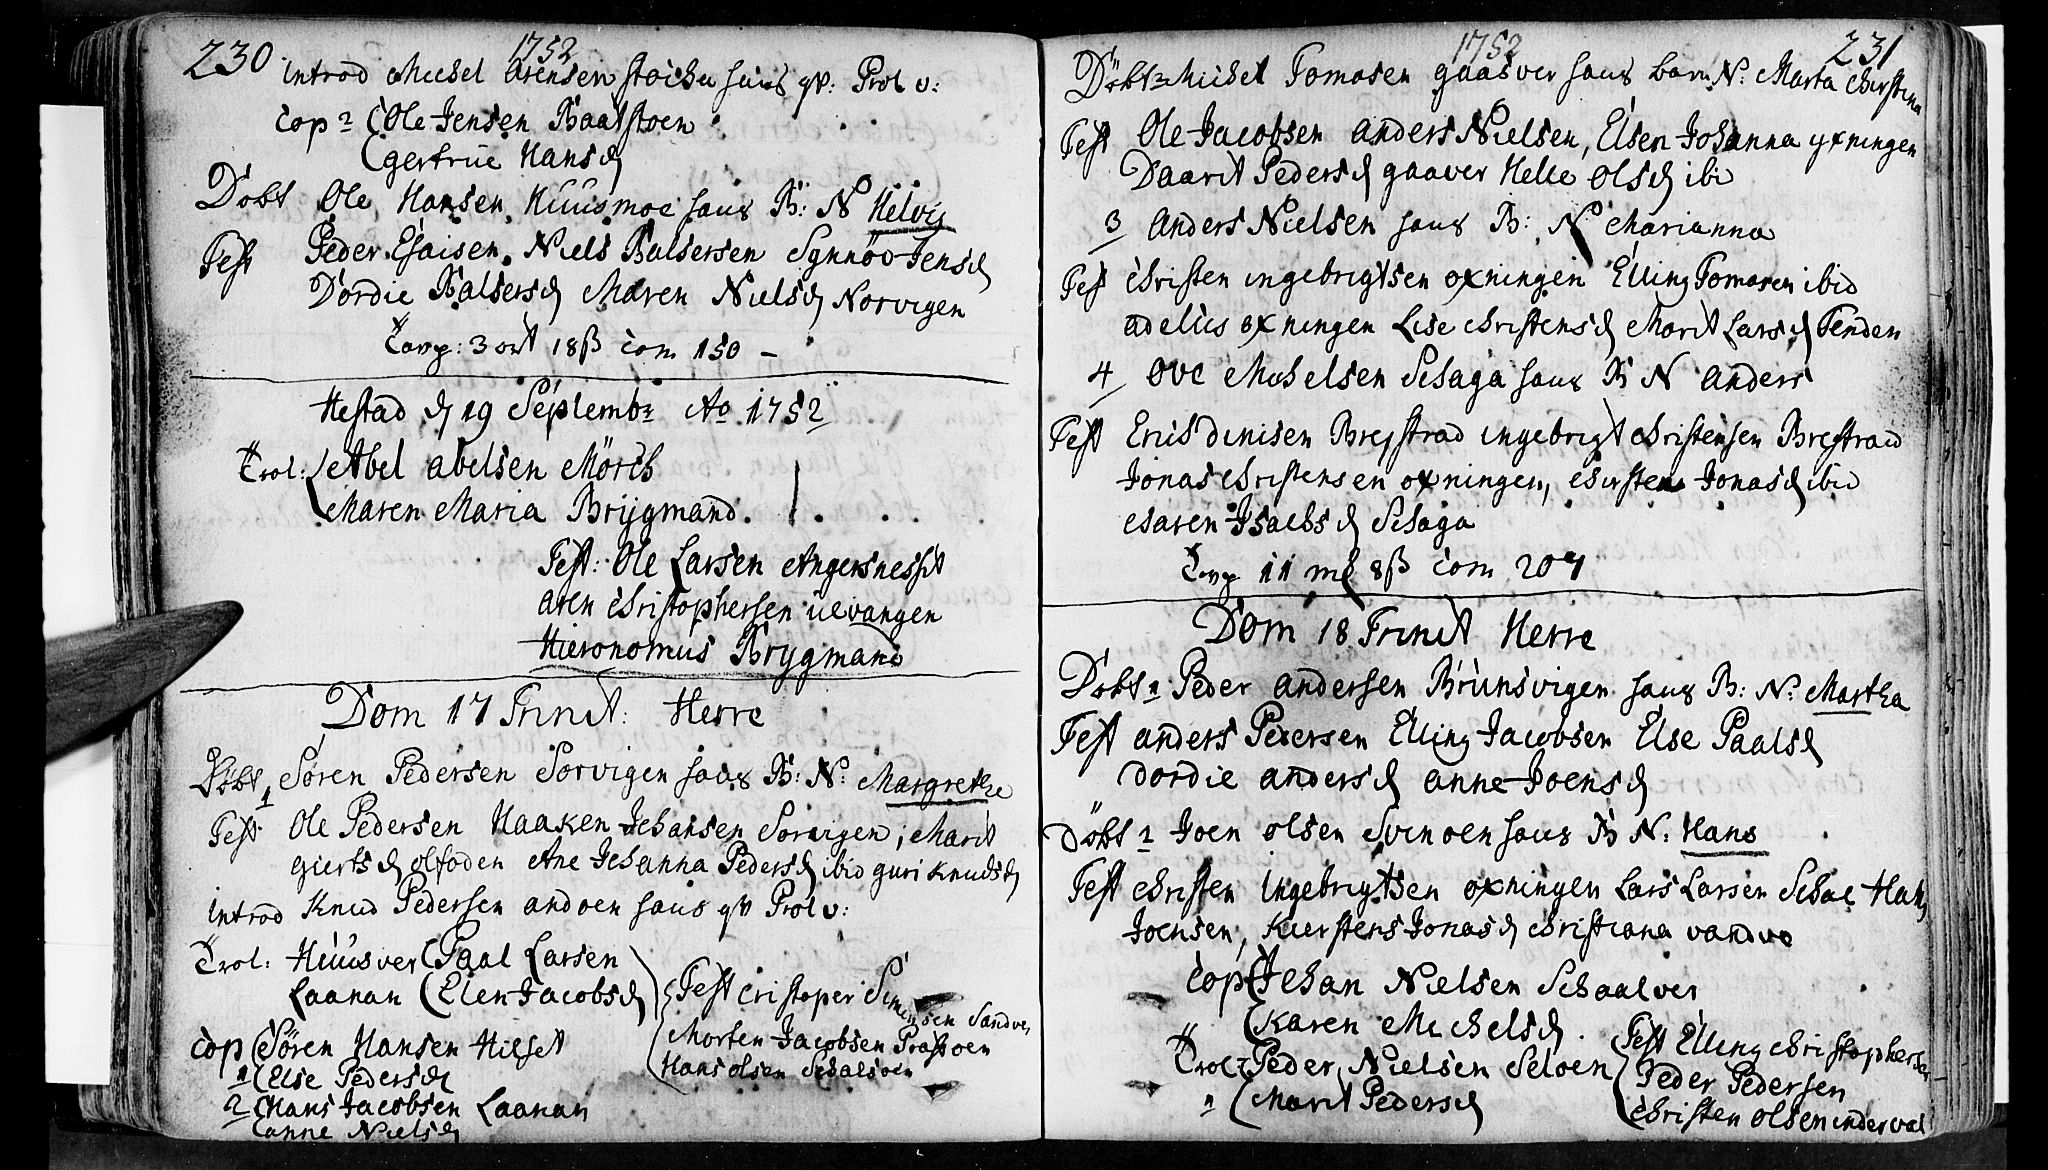 230
1752
introd Michel Arensen stochu haus qv: Prol v:
Cop 2 Ole Jensen Baalstoen
gertrue Hansd
Döbt Ole Hansen Huusmoe haus B: N Helvig
Test Peder Esaisen. Niels Balsersen Synnöv Jensd
Dordie Balsersd Maren Nielsd Norvigen
Tavp: 3 ort 18ß Com 150 -
Hestad d 19 Septembr Ao 1752
Trol: Abel abelsen Mörch
Maren Maria Brygmand.
Test: Ole Larsen Angersneshit
aren Christophersen ulvangen
Hieronomus Brygmand
Dom 17 Trinit: Herre
Döbt 1 Sören Pedersen Sorvigen haus B: N: Margrethe
Test Ole Pedersen Haaken Johansen Sorvigen, Marit
giertsd olfoden Ane Johanna Pedersd ibid guri Knudsd
introd Knud Pedersen andoen haus qv Prol v:
Trol: Huusver Paal Larsen
Laanan Elen Jacobsd
Test Cristoper Simensen Sandve,
Morten Jacobsen Prastoen
Hans olsen Schalsoen
Cop Sören Hansen Hilset
1 Else Pedersd
2 Hans Jacobsen Laanan
anne Nielsd
1752
231
Döbt 2 Michel Tomasen gaasver haus barn N: Marta Chirstina
Test Ole Jacobsen anders Nielsen, Elsen Johanna yxningen
Daarit Pedersd gaaver Helle olsd ibi
3 Anders Nielsen haus B: N Marianna
Test Christen ingebrigtsen oxningen Elling Tomasen ibid
adelus oxningen Lise Christensd Marit Larsd Tenden
4 Ove Michelsen Schaga haus B N Anders
Test Erich denisen Brejstrad ingebrigt Christensen Brejstrad
Jonas Christensen oxningen, Chirsten Jonasd ibid
Maren Isachsd Schaga
Tavp 11 mk 8ß Com 207
Dom 18 Trinit Herre
Döbt 1 Peder andersen Brunsvigen haus B: N: Martha
Test anders Pedersen Elling Jacobsen Else Paalsd
dordie andersd anne Joensd
Döbt 2 Joen olsen Svinoen haus B N: Hans
Test Christen Ingebrigtsen oxningen Lars Larsen Schae Hans
Joensen, Kierstens Jonasd Christiana vandve
Cop Johan Nielsen Schaalver
Karen Michelsd.
Trol Peder Nielsen Seloen
Marit Pedersd
Test Elling Christophersen
Peder Pedersen
Christen olsen inderval